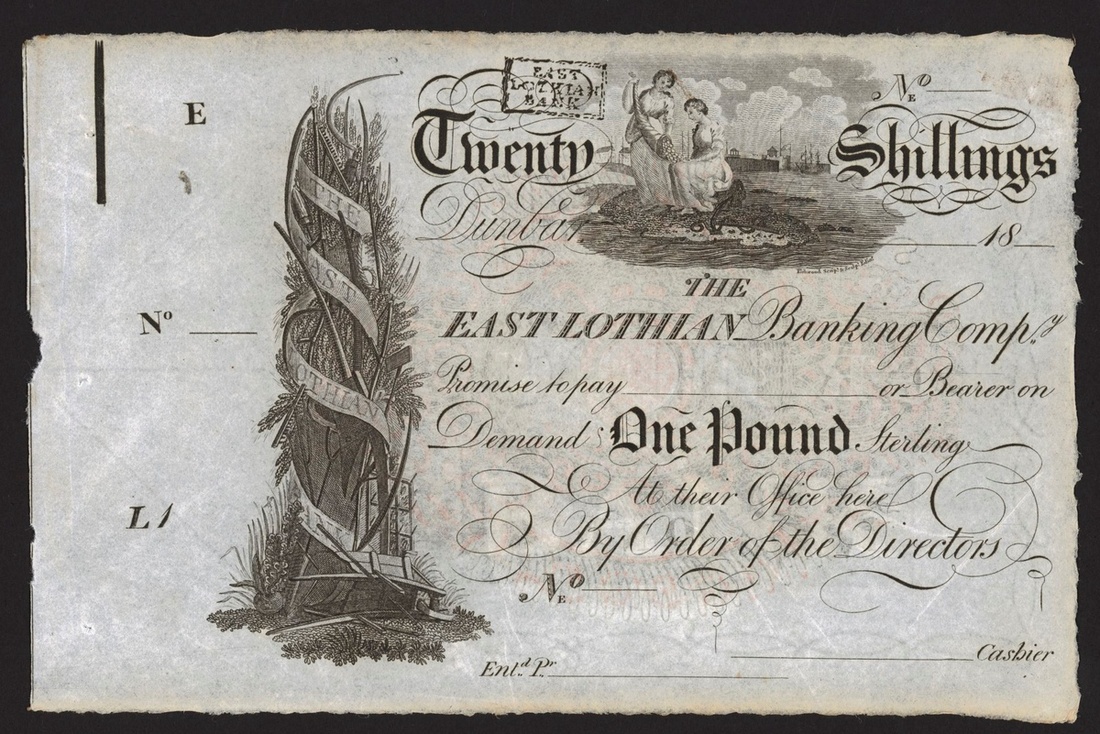 E
Nº
L1
THE
EAST
LOTHIAN
EAST
LOTHIAN
BANK
Nº E
Twenty Shillings
Dunbar 18
THE
EAST LOTHIAN Banking Compy
Promise to pay or Bearer on
Demand One Pound Sterling
At their Office here
By Order of the Directors
Nº E
Cashier
Entd. Pr.